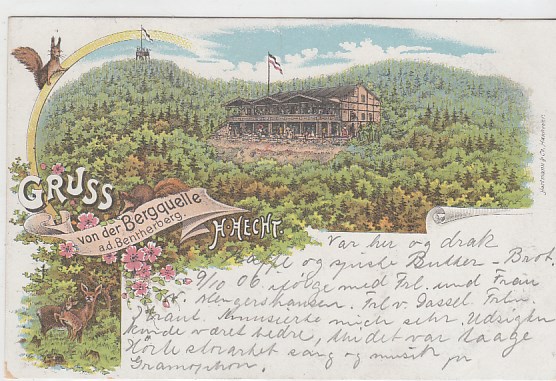 GRUSS
von der Bergquelle
a.d. Bentherberg.
H. HECHT.
Hartmann & Co. Hannover.
Var her og drak
Kaffe og spiste Butter-Brot
9/10 06 ifølge med Frl. und Frau
v. Mengershausen. Frl v. Gassel. Frln.
Amusierte mich sehr. Udsigten
kunde været bedre, men det var taage
Hörte storartet sang og musik pr
Gramophon.